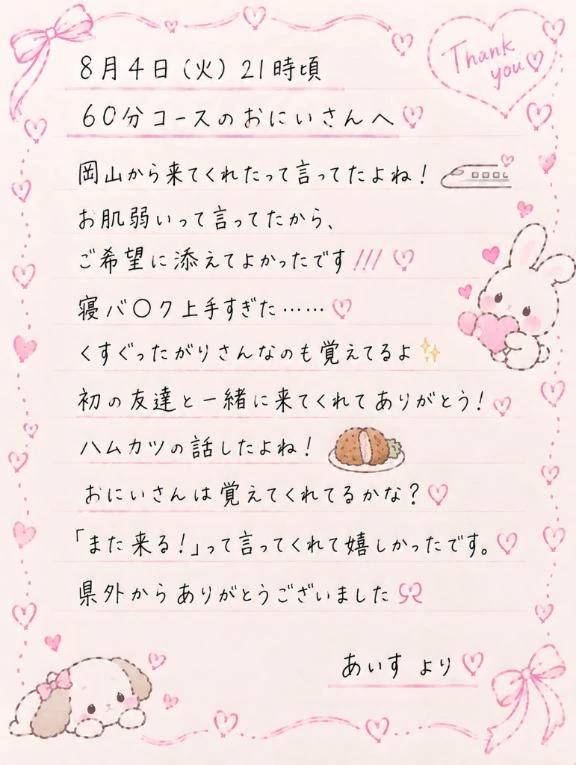 Thank
you
8月4日(火)21時頃
60分コースのおにいさんへ
岡山から来てくれたって言ってたよね!
お肌弱いって言ってたから、
ご希望に添えてよかったです!!!
寝バ〇ク上手すぎた……
くすぐったがりさんなのも覚えてるよ
初の友達と一緒に来てくれてありがとう!
ハムカツの話したよね!
おにいさんは覚えてくれてるかな?
「また来る!」って言ってくれて嬉しかったです。
県外からありがとうございました
あいす より